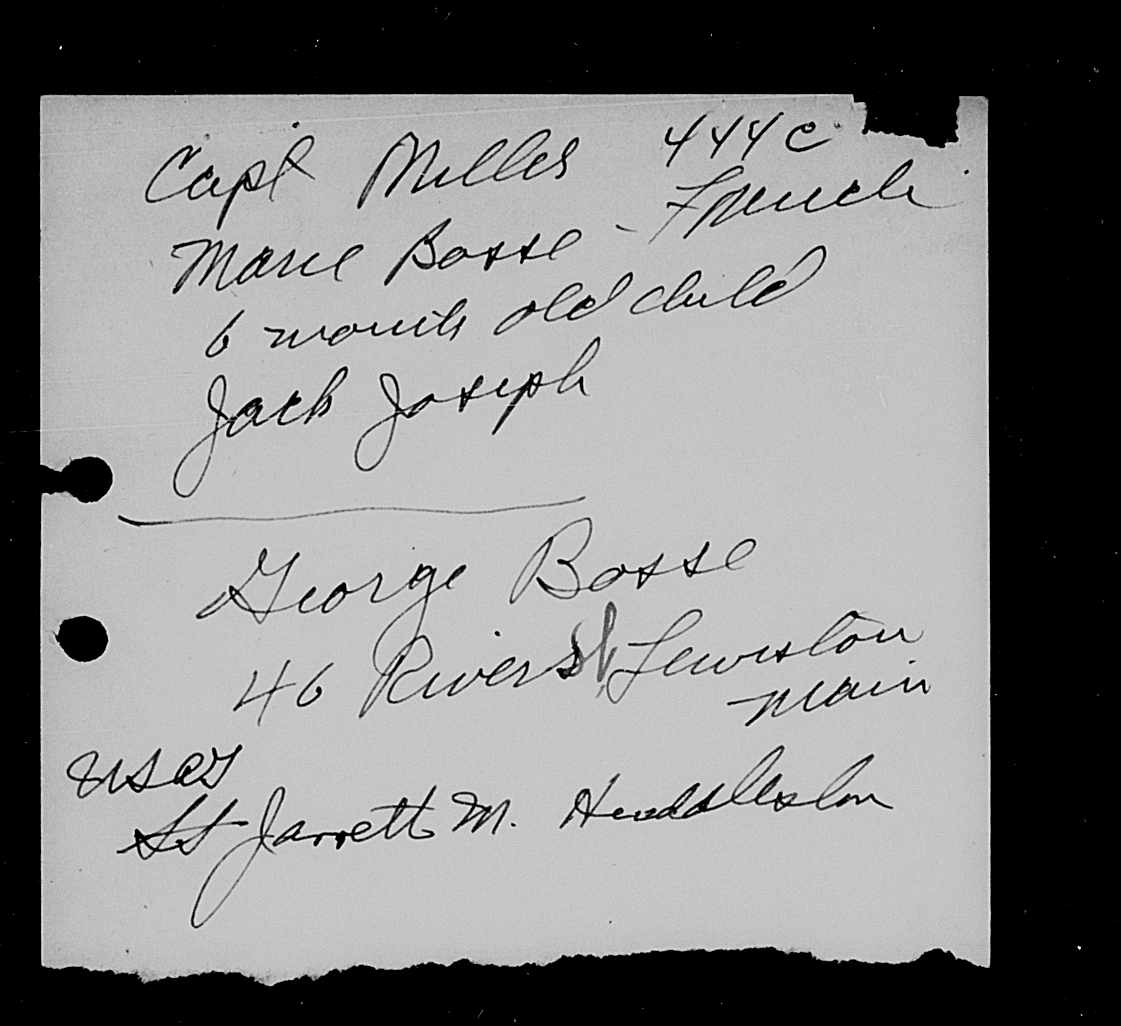 Capt Miller 444 C
Marie Bosse - French
6 months old child
Jack Joseph
George Bosse
46 River St Lewiston
Main
Lt Jarrett M. Huddleston